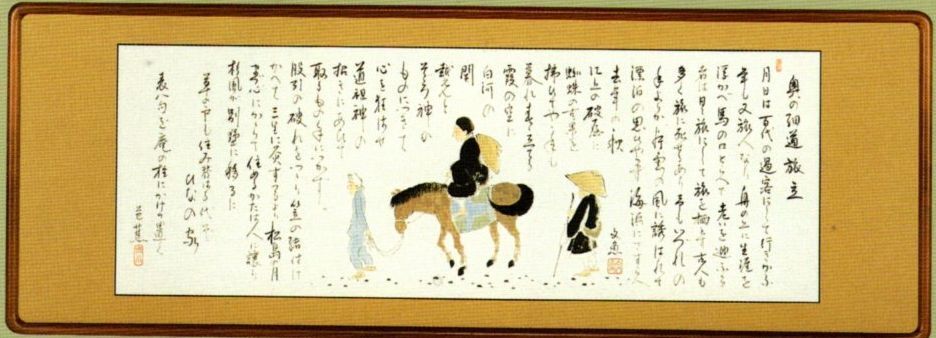 奥の細道旅立
月日は百代の過客にして行きかふ
年も又旅人なり舟の上に生涯を
浮かべ馬の口とらへて老いを迎ふる
者は日々旅にして旅を栖とす古人も
多く旅に死せるあり予もいづれの
年よりか片雲の風に誘はれて
漂泊の思ひやまず海浜にさすらへ
去年の秋
江上の破屋に
蜘蛛の古巣を
払ひてやゝ年も
暮れ春立てる
霞の空に
白河の
関
越えんと
そゞろ神の
ものにつきて
心を狂はせ
道祖神の
招きにあひて
取るもの手につかず
股引の破れをつゞり笠の緒付け
かへて三里に灸すうるより松島の月
まづ心にかゝりて住めるかたは人に譲り
杉風が別墅に移るに
草の戸も住み替はる代ぞ
ひなの家
表八句を庵の柱にかけ置く
芭蕉